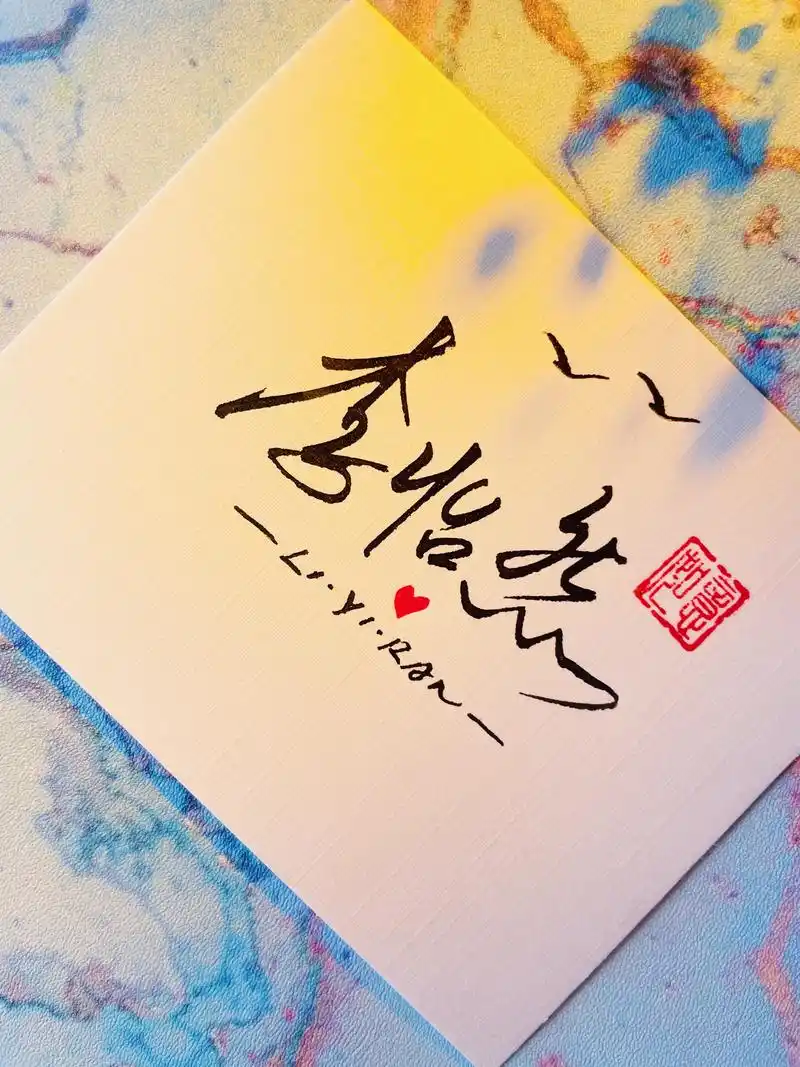 李怡然
LI.YI.RAN